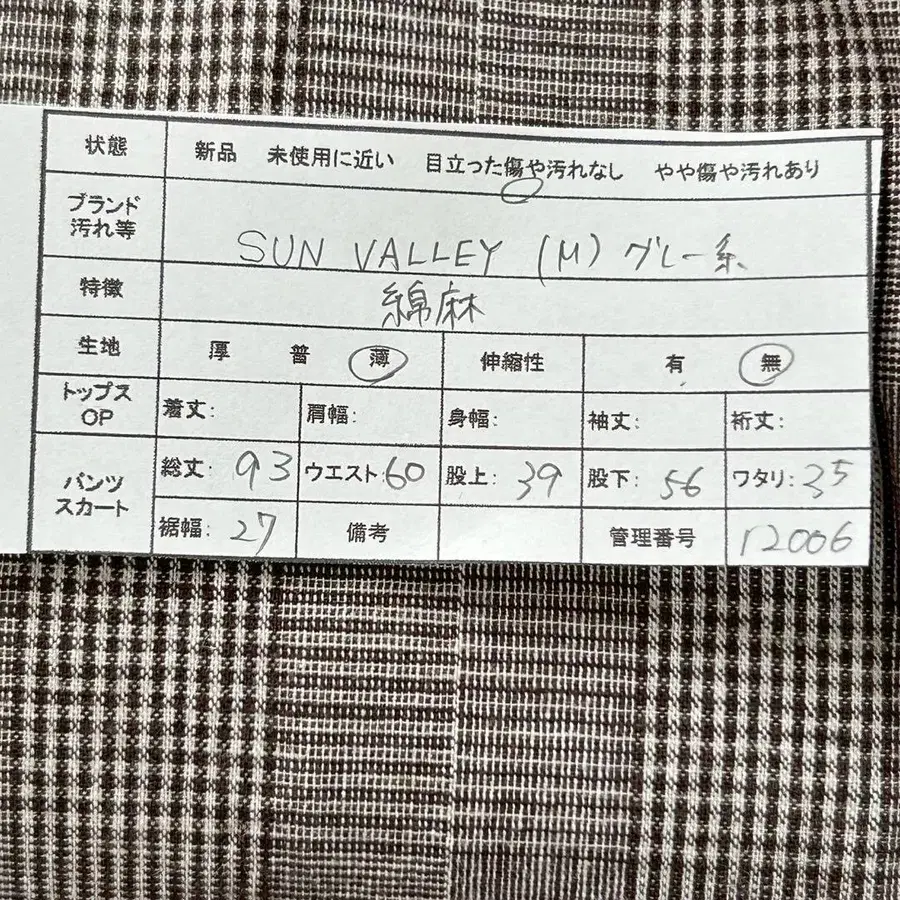 状態 新品 未使用に近い 目立った傷や汚れなし やや傷や汚れあり
ブランド
汚れ等
SUN VALLEY (M) グレー系
特徴 綿麻
生地 厚 普 薄 伸縮性 有 無
トップス
OP
着丈: 肩幅: 身幅: 袖丈: 裄丈:
パンツ
スカート
総丈: 93 ウエスト: 60 股上: 39 股下: 56 ワタリ: 35
裾幅: 27 備考 管理番号 r2006